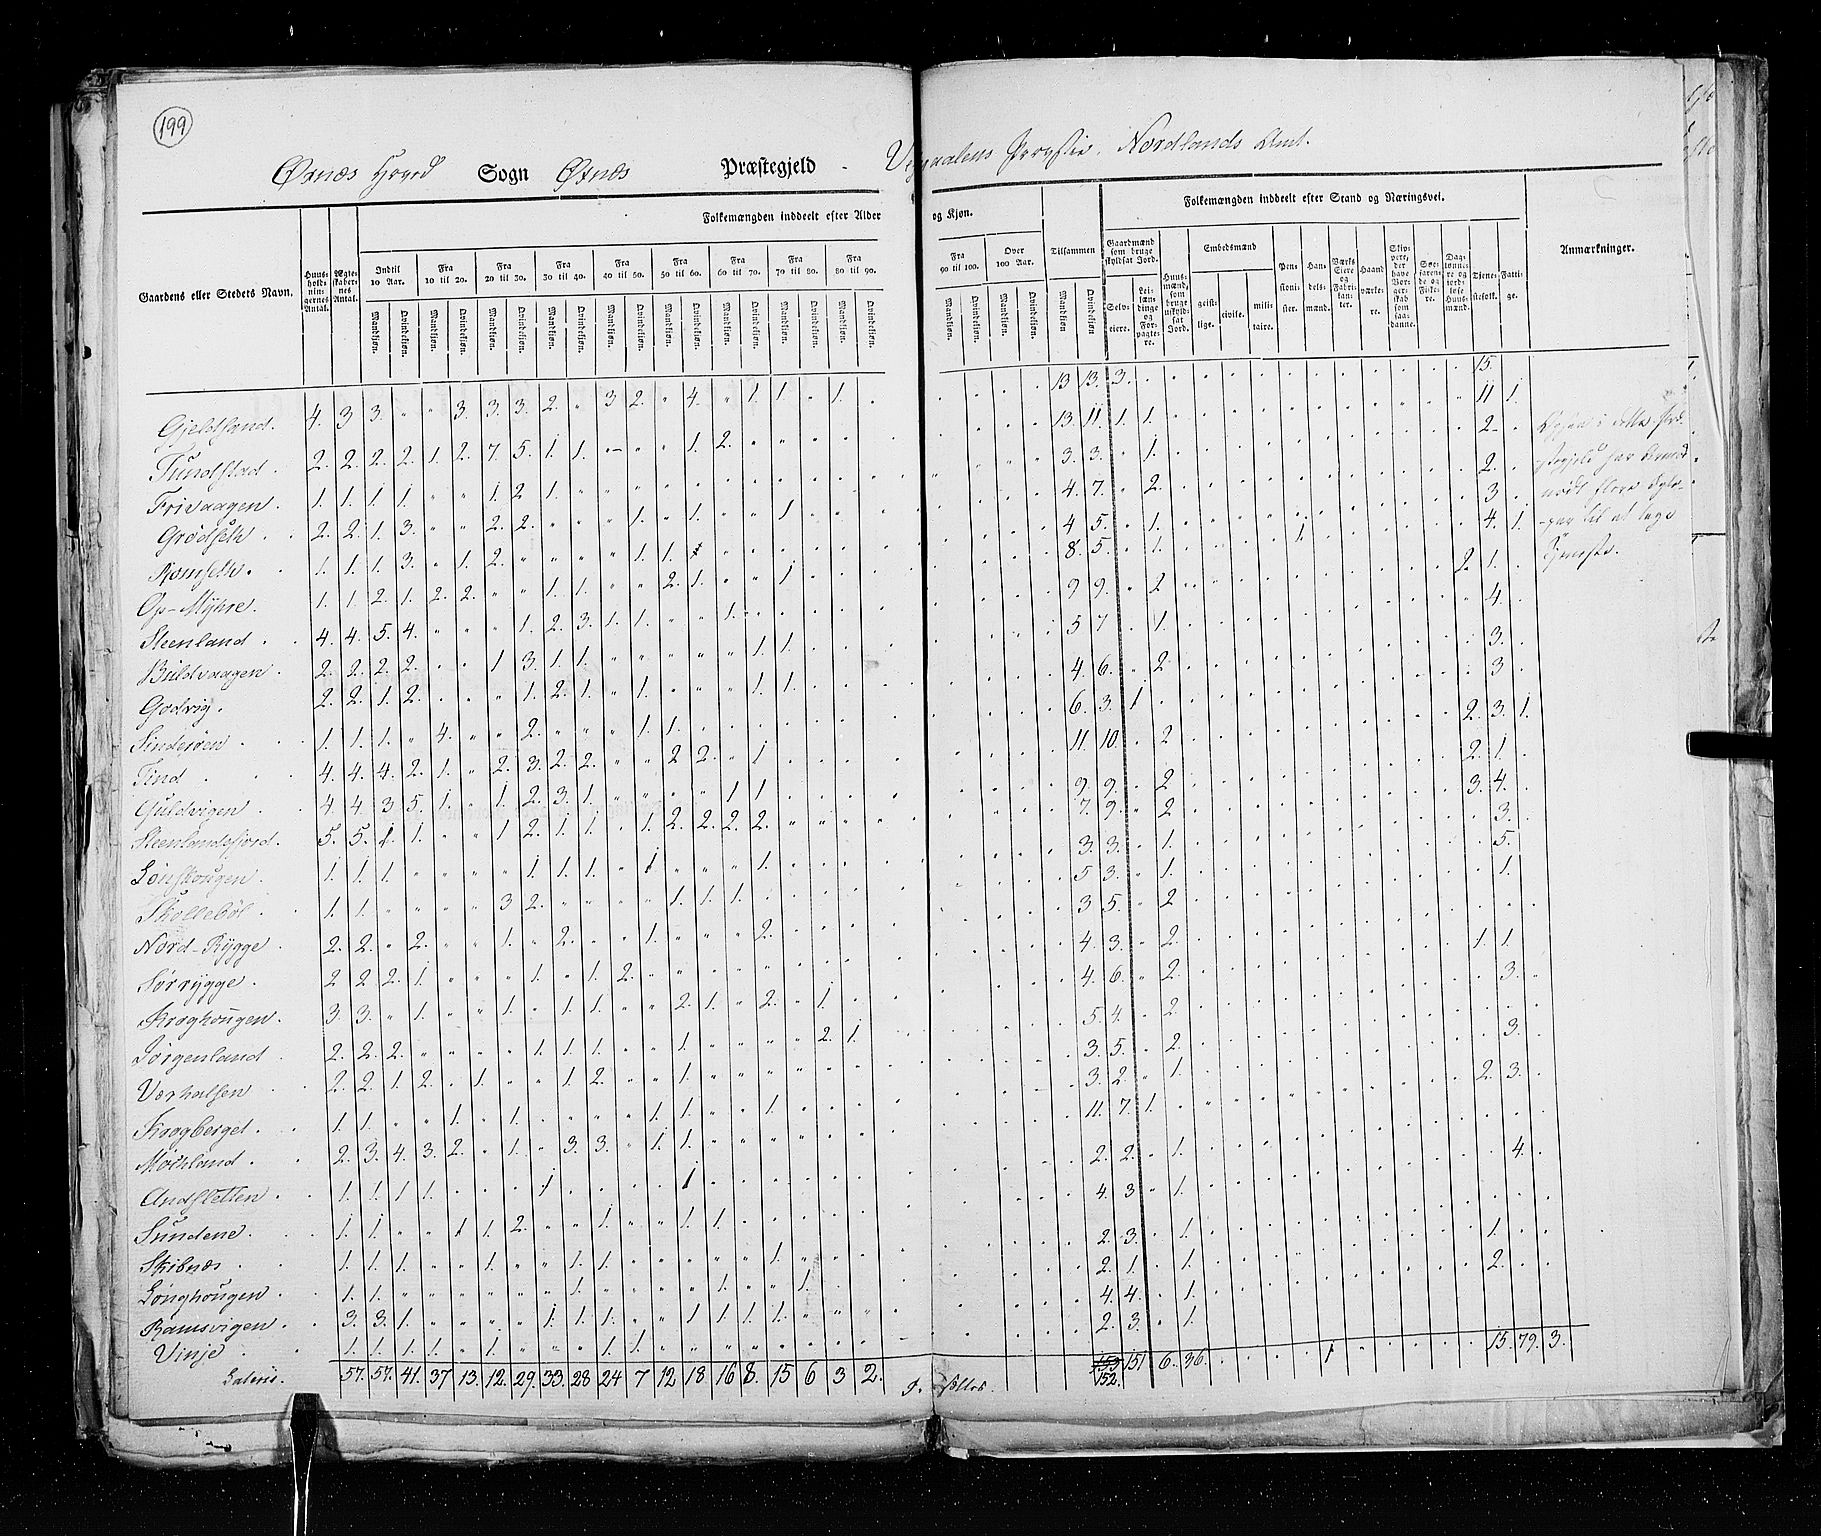 199
Øxnes Hoved Sogn Øxnes Præstegjeld - Vesraalens Provstie. Nordlands Amt.
Gaardens eller Stedets Navn.
Huusholdningernes Antal.
Ægteskabernes Antal.
Folkemængden inddeelt efter Alder og Kjøn.
Indtil 10 Aar.
Fra 10 til 20.
Fra 20 til 30.
Fra 30 til 40.
Fra 40 til 50.
Fra 50 til 60.
Fra 60 til 70.
Fra 70 til 80.
Fra 80 til 90.
Fra 90 til 100.
Over 100 Aar.
Tilsammen
Mandkjøn. Qvindekjøn.
Folkemængden inddeelt efter Stand og Næringsvei.
Gaardmænd som bruge skyldsat Jord.
Selveiere.
Leilændinge og Forpagtere.
Huusmænd, som bruge uskyldsat Jord.
Embedsmænd
geistlige.
civile.
militaire.
Pensionister.
Handelsmænd.
Værkseiere og Fabrikanter.
Haandværkere.
Skippere, der have Borgerskab som saadanne.
Søefarende og Fiskere.
Daglønnere og jordløse Huusmænd.
Tjenestefolk.
Fattige.
Anmærkninger.
Gjeldsand. 4. 3 3. " " 3. 3. 3. 2. " 3 2. " 4. " 1. 1. " 1. 13 13. 3. 15.
Tundstad. 2. 2. 2. 2. 1. 2. 7. 5. 1. 1. 1. 2. 13. 11. 1. 1. 11 1.
Frisaagen. 1. 1. 1. 1. " " 1. 2 1. 3. 3. 1. 2.
Grødseth. 2. 2. 1. 3. " " 2. 2. 1. 1. 1 4. 7. 2. 2.
Romseth. 1. 1. 1. 3. " 1. 2. 1. 1. 4 5. 1. 1. 3
Op-Myhre. 1. 1. 2. 1. 2. 2. 1. 1. 2. 1. 1 8. 5. 1. 4. 1.
Steenland. 4. 4. 5. 4. 1. 2. 3. 1. 1. 1. 9 9. 2 2. 1.
Buldvaagen. 2. 2. 2. 2. 1 3. 1. 1. 1. 1. 5 7 1. 4.
Godvig. 2. 2. 1. 2. 1. 2. 1. 1. 1. 1. 4. 6. 2. 3.
Sinderøen 1. 1. 1. 4. 2. 1. 1. 6. 3. 1 3
Tind 4. 4. 4. 2. 1. 2. 3. 2. 2. 2 2. 1 11. 10. 2 2. 3. 1.
Guldvigen. 4 4 3 5. 1. 1. 2. 3. 1. 1 1. 9 9. 2 2. 1.
Steenlandsfjord. 5. 5. 1 1. 1 2. 1. 1. 1. 2. 2. 2. 2. 7. 9. 2 3. 4.
Lønskougen. 1. 1. 1. 1. 1. 1. 1 1. 3. 3. 1. 3.
Skollebøl. 1. 1. 3 2. 1. 1. 1. 5 3. 1. 5.
Nord-Rygge. 2. 2. 2. 1. 2. 1. 2. 3 5. 2 1.
Sørrygge. 2 2 2. 1. 1. 1. 2. 4. 3. 2. 1. 1.
Kroghougen. 3. 3. 1. 1. 1. 1. 2. 1. 2. 1. 4. 6. 2. 3.
Jørgenland 2. 2. 2. 1. 1. 1. 1. 2. 1. 5. 4. 2.
Værhalsen 2. 2. 1. 2. 1. 1. 2. 1. 3. 5. 2. 3.
Kragberget. 1. 1. 1. 1. 1. 1. 1. 3. 2. 1. 2. 3.
Mørkland. 2. 3. 4. 3. 2. 1. 3. 3. 1. 1. 11. 7. 1.
Andsletten. 1. 1. 1 1. 1 1 2. 2. 1. 4.
Sundene. 1. 1. 1 1. 2. 1. 1. 1. 4. 3 1.
Skibnæs. 1. 1. 1. 1. 1. 1. 1. 2. 3. 1. 1.
Longhougen. 1. 1. 1. 1. 1. 2. 1. 1. 2.
Ramsvigen. 3. 3. 1. 1. 1. 1. 1 1. 1. 1. 4. 4. 1.
Vinje. 1. 1. 1. 1. 1. 1. 1. 2. 3. 1.
Lateris. 57. 57. 41. 37 13. 12. 29. 33. 28 24 7 12 18. 16 8. 15 6 3 2. 153 152. 151 6. 36. 1 15. 79. 3.